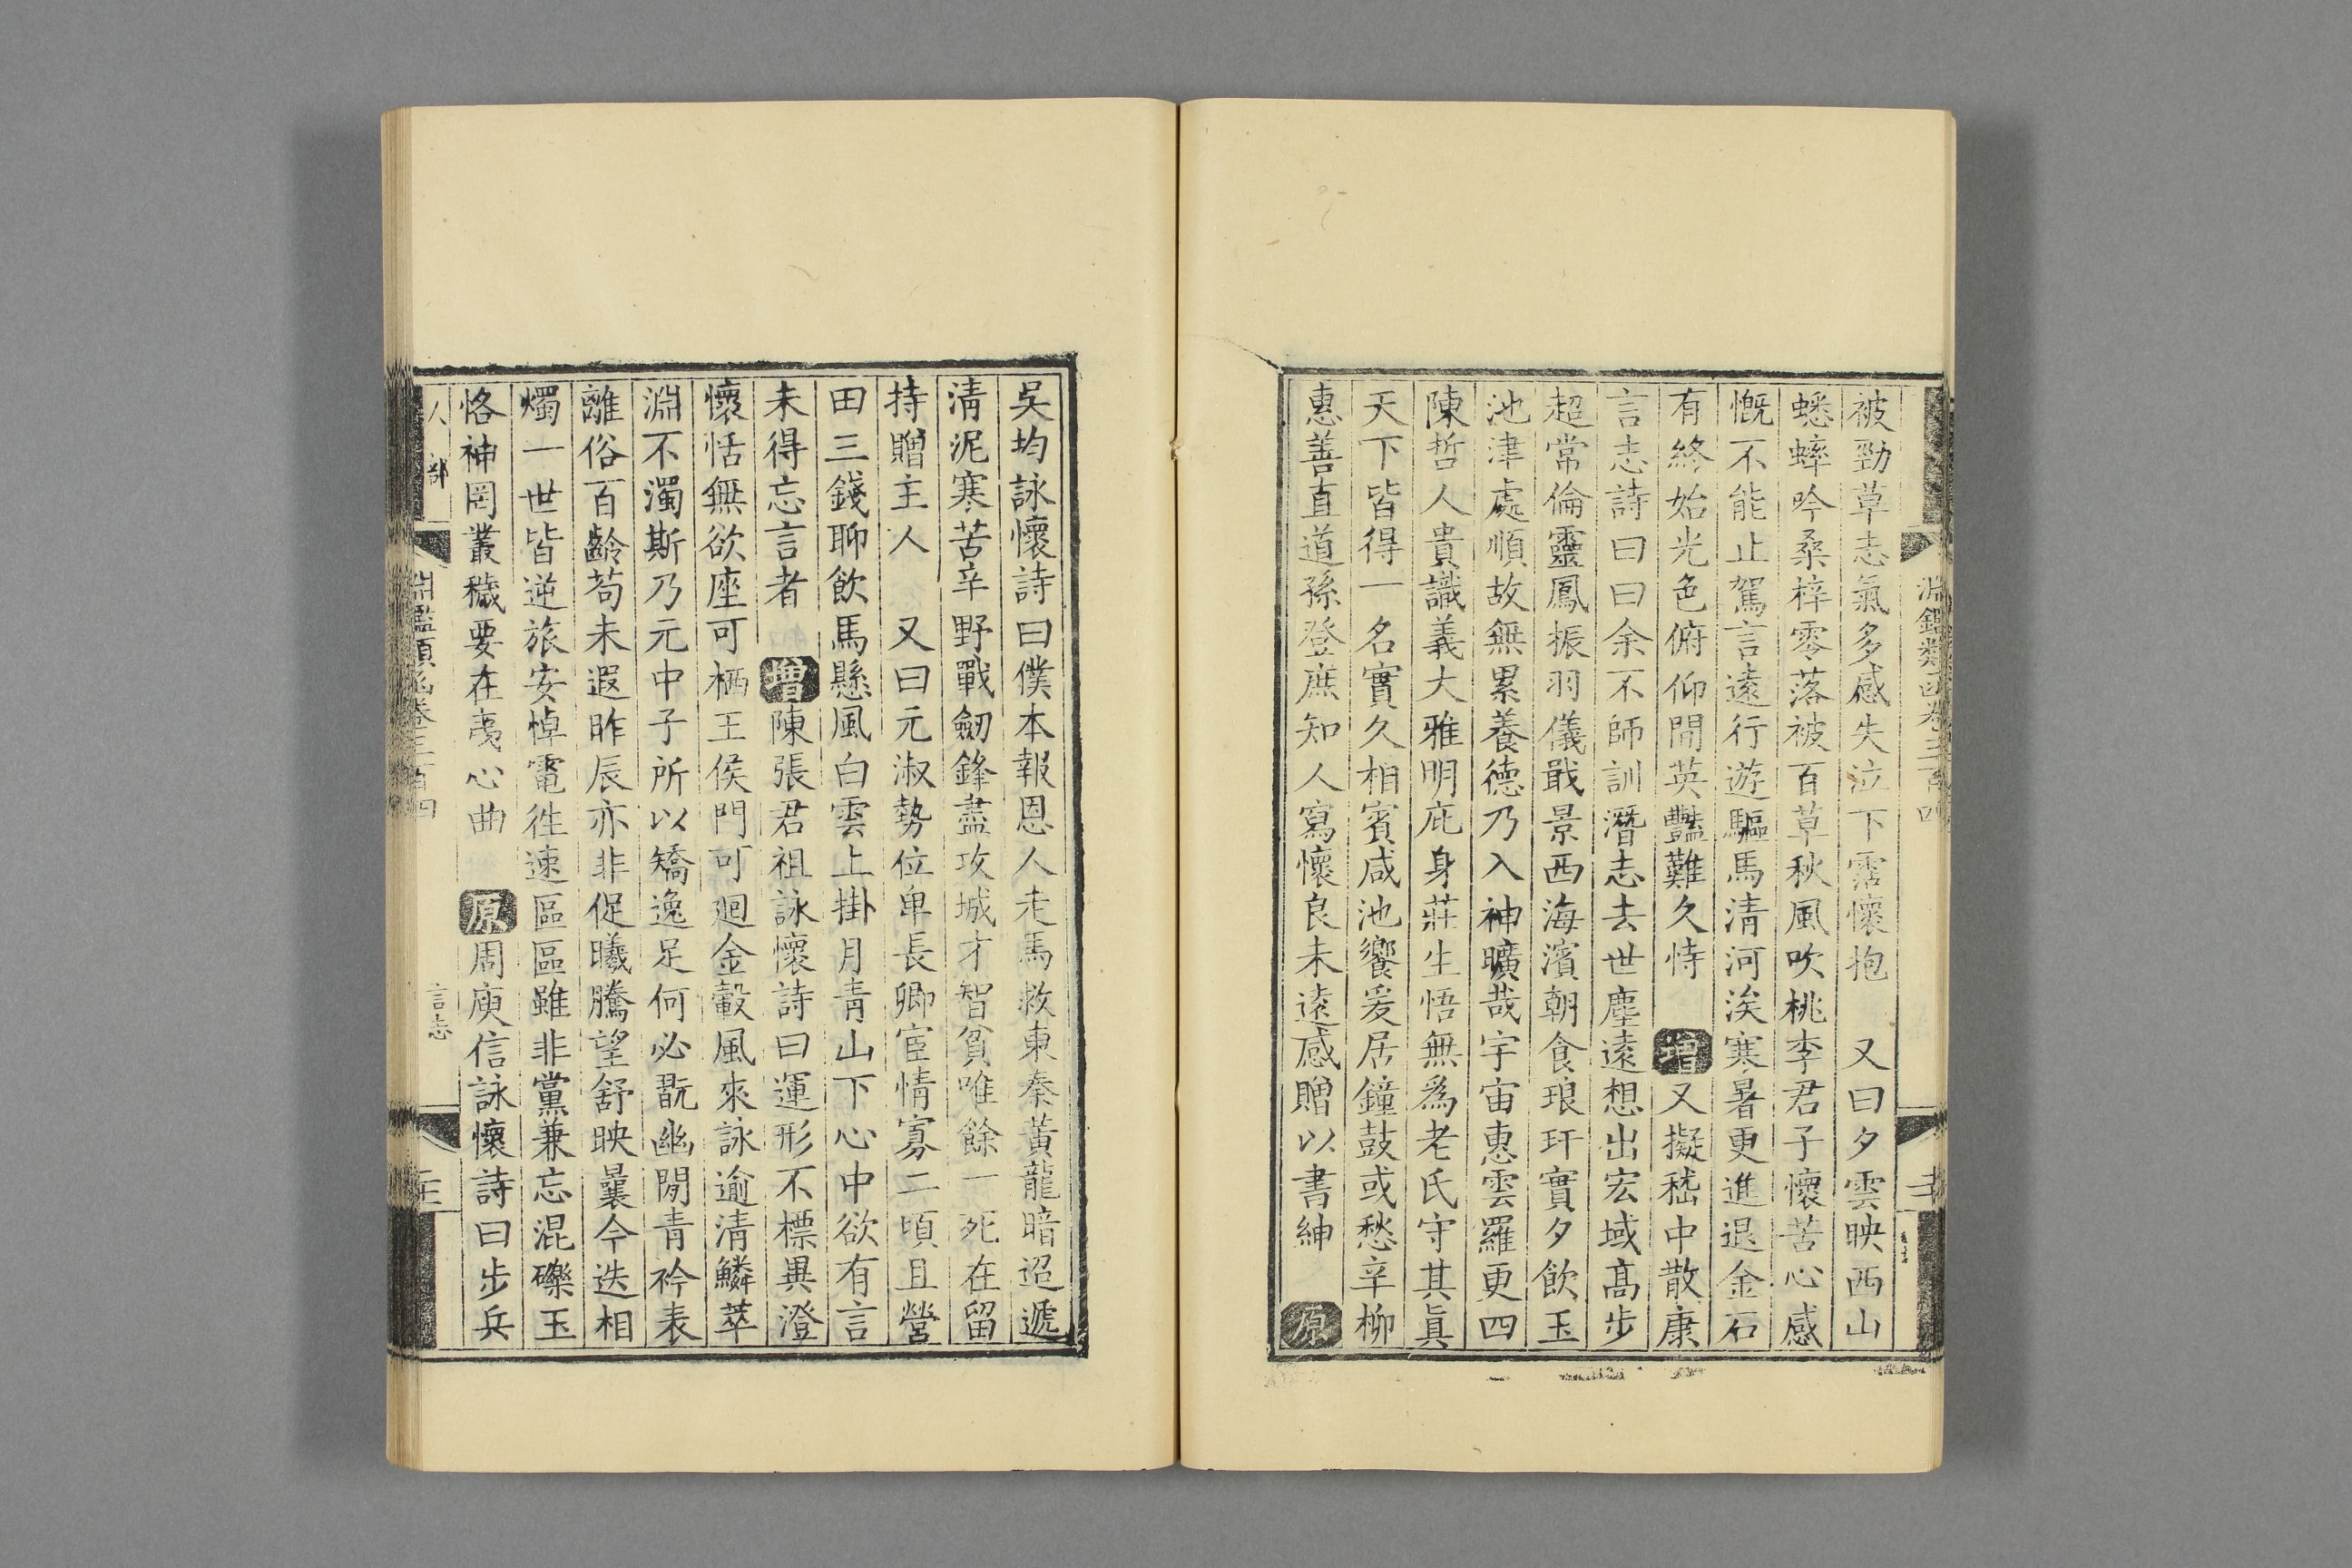 淵鑑類函卷三百四
被勁草志氣多感失泣下霑懷抱 又曰夕雲映西山
蟋蟀吟桑梓零落被百草秋風吹桃李君子懷苦心感
慨不能止駕言遠行遊驅馬清河涘寒暑更進退金石
有終始光色俯仰間英豔難久恃 增又擬嵇中散康
言志詩曰曰余不師訓潛志去世塵遠想出宏域高步
超常倫靈鳳振羽儀戢景西海濱朝食琅玕實夕飲玉
池津處順故無累養德乃入神曠哉宇宙惠雲羅更四
陳哲人貴識義大雅明庇身莊生悟無為老氏守其眞
天下皆得一名實久相賓咸池饗爰居鐘鼓或愁辛柳
惠善直道孫登庶知人寫懷良未遠感贈以書紳 原
吳均詠懷詩曰僕本報恩人走馬救東秦黃龍暗迢遞
清泥寒苦辛野戰劒鋒盡攻城才智貧唯餘一死在留
持贈主人 又曰元淑勢位卑長卿宦情寡二頃且營
田三錢聊飲馬懸風白雲上掛月青山下心中欲有言
未得忘言者 增陳張君祖詠懷詩曰運形不標異澄
懷恬無欲座可栖王侯門可迴金轂風來詠逾清鱗萃
淵不濁斯乃元中子所以矯逸足何必翫幽閒青衿表
離俗百齡苟未遐昨辰亦非促曦騰望舒映曩今迭相
燭一世皆逆旅安悼電徃速區區雖非黨兼忘混礫玉
恪神罔叢穢要在夷心曲 原周庾信詠懷詩曰步兵
人部
淵鑑類函卷三百四
言志